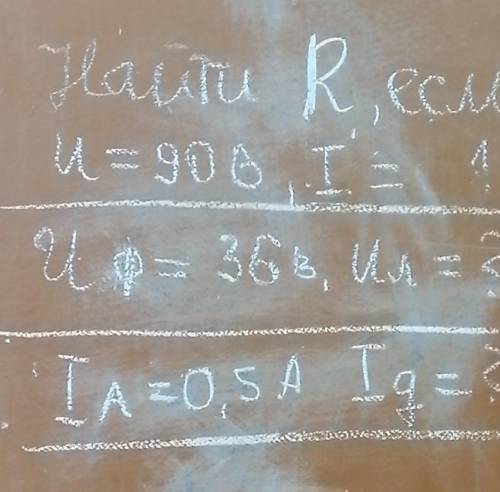 Найти R, если
U = 90 В, I =
Uф = 36 в, Uл = ?
IA = 0,5 А Iд = ?